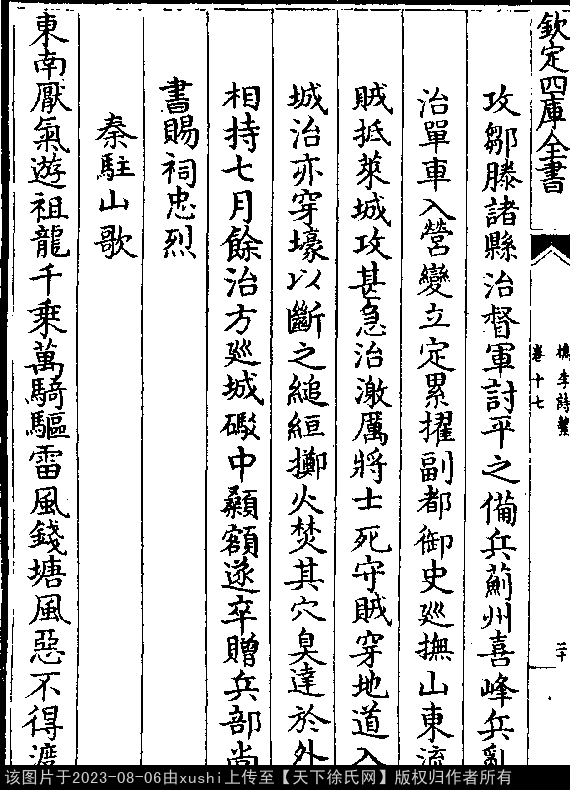 欽定四庫全書
檇李詩繫
卷十七
二十
攻鄒滕諸縣治督軍討平之備兵薊州喜峰兵亂
治單車入營變立定累擢副都御史廵撫山東流
賊抵萊城攻甚急治激厲將士死守賊穿地道入
城治亦穿壕以斷之縋絙擲火焚其穴臭達於外
相持七月餘治方廵城礮中顙額遂卒贈兵部尚
書賜祠忠烈
秦駐山歌
東南厭氣遊祖龍千乘萬騎驅雷風錢塘風惡不得渡
该图片于2023-08-06由xushi上传至【天下徐氏网】版权归作者所有